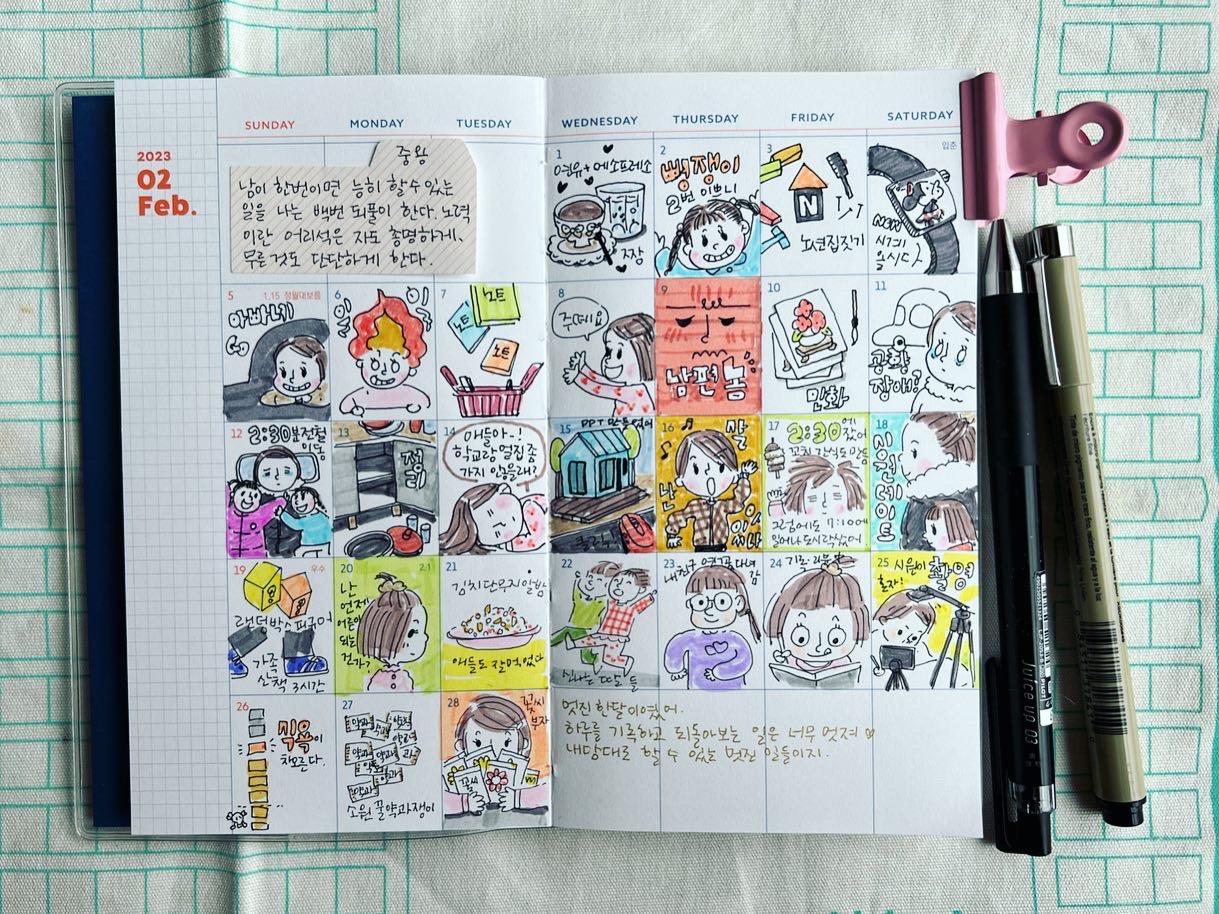 2023
02
Feb.
SUNDAY
MONDAY
TUESDAY
WEDNESDAY
THURSDAY
FRIDAY
SATURDAY
중용
남이 한번이면 능히 할수 있는
일을 나는 백번 되풀이 한다. 노력
이란 어리석은 자도 총명하게,
무른것도 단단하게 한다.
1
에소프레소
2
뻥쟁이
2번 이쁘니
3
N
노션집짓기
4
입춘
NOW
5
1.15 정월대보름
아바나지
GO
6
7
노트
노트
노트
8
주떼요
9
남편놈
10
민화
11
공황
장애?
12
2:30분
13
정리
14
얘들아~!
학교랑 얼집 좀
가지 않을래?
15
PPT 만들었어
클릭!
16
난
살
있
17
2:30에
잤어
꼬치 간식도 만듦
그럼에도 7:10에
일어나 도시락쌌었어
18
심전데이트
19
우수
랜덤박스피규어
가족
산책 3시간
20
2.1
난
언제
어른이
되는
건가?
21
김치단무지알밥
애들도 잘먹었다
22
신나는 딸들
23
24
기록
25
시윤이
혼자!
촬영
26
식욕이
차오른다.
27
약과
약과
약과
약과
약과
약과
소원 꿀약과쟁이
28
꽃씨
부자
꽃씨
멋진 한달이였어.
하루를 기록하고 되돌아보는 일은 너무 멋져
내맘대로 할 수 있는 멋진 일들이지.
Juice up 03
PILOT